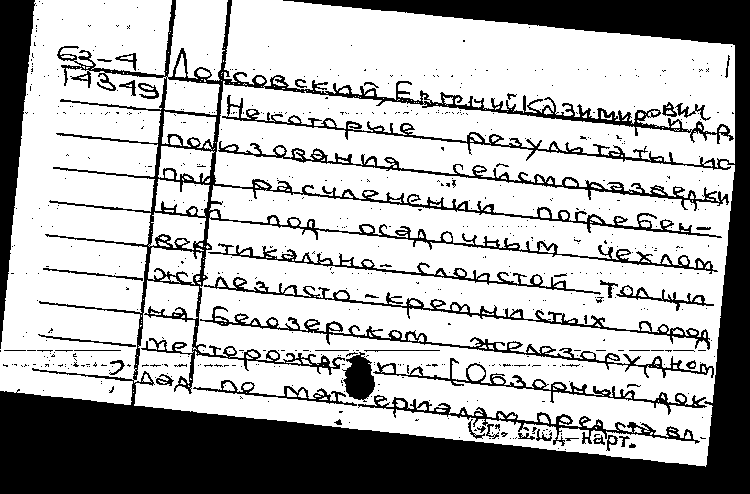 63-4
14349
Лоссовский, Евгений Казимирович
и др.
Некоторые результаты ис-
пользования сейсморазведки
при расчленении погребен-
ной под осадочным чехлом
вертикально-слоистой толщи
железисто-кремнистых пород
на Белозерском железорудном
месторождении. [Обзорный док-
лад по материалам, представл.
См. след. карт.